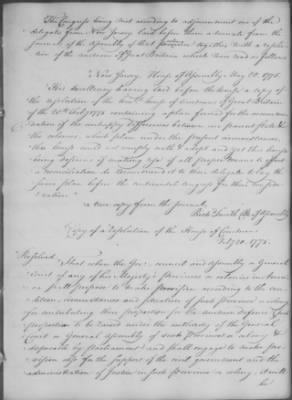 The Congress being met according to adjournment one of the
delegates from New Jersey laid before them a minute from the
journal of the assembly of that together with a resolution
of the commons of Great Britain which were read as follows
New Jersey House of Assembly May 20. 1775.
His Excellency having laid before the house a copy
of the resolution of the house of commons of Great Britain
of the 20th Feby 1775 containing a plan formed for the accommodation
of the unhappy differences between our parent State &
the colonies, which plan under the present circumstances,
this house could not comply with & adopt and yet this house
being desirous of making use of all proper means to effect
a reconciliation do recommend it to their delegates to lay the
same plan before the continental congress for their consideration
a true copy from the journal
Richd Smith Clk of Assembly
Copy of a resolution of the House of Commons
Feby 20. 1775.
Resolved That when the Governor council and assembly or General
Court of any of his Majesty's provinces or colonies in America
shall propose to make provision according to the
condition circumstances and situation of such province or colony
for contributing their proportion for the common defence such
proportion to be raised under the authority of the General
Court or General Assembly of such province or colony &
disposable by parliament and shall engage to make provision
also for the support of the civil government and the
administration of Justice in such province or colony it will
be